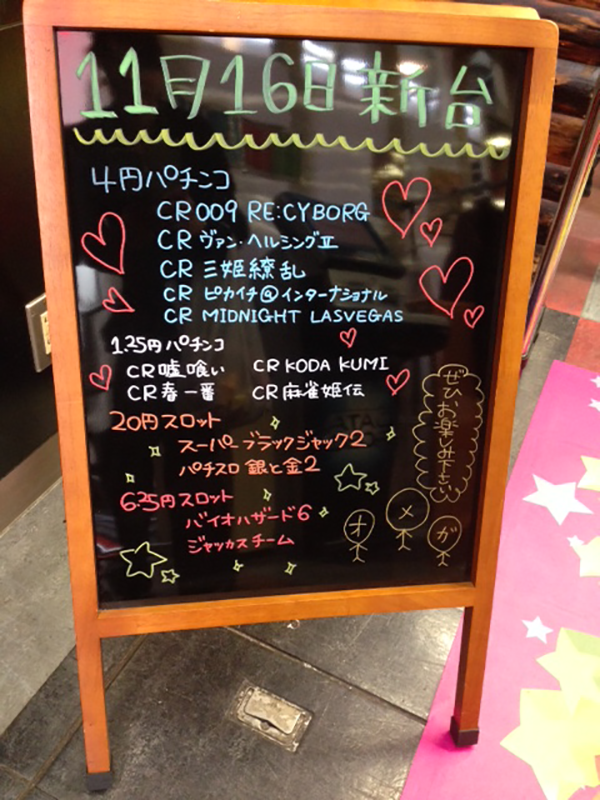 11月16日 新台
4円パチンコ
CR 009 RE:CYBORG
CR ヴァン・ヘルシングⅡ
CR 三姫繚乱
CR ピカイチ@インターナショナル
CR MIDNIGHT LASVEGAS
1.25円パチンコ
CR嘘喰い CR KODA KUMI
CR春一番 CR麻雀姫伝
20円スロット
スーパーブラックジャック2
パチスロ 銀と金2
6.25円スロット
バイオハザード6
ジャッカスチーム
ぜひお楽しみ下さい
オメガ